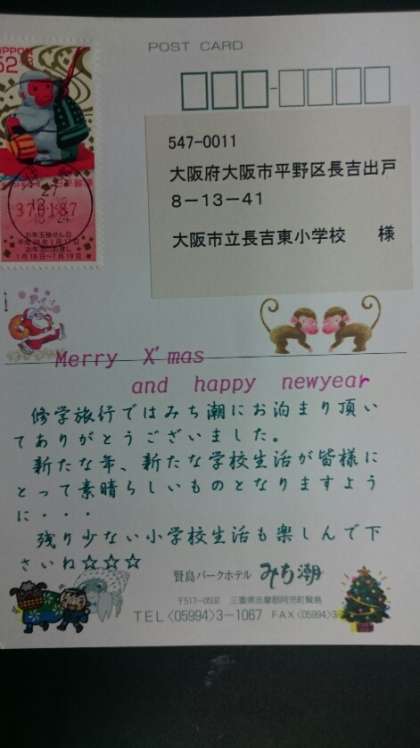 POST CARD
NIPPON
52
年賀
378187
27
お年玉抽せん日
547-0011
大阪府大阪市平野区長吉出戸
8-13-41
大阪市立長吉東小学校 様
Merry X'mas
and happy newyear
修学旅行ではみち潮にお泊まり頂い
てありがとうございました。
新たな年、新たな学校生活が皆様に
とって素晴らしいものとなりますよう
に・・・
残り少ない小学校生活も楽しんで下
さいね☆☆☆
賢島パークホテル みち潮
〒517-0502 三重県志摩郡阿児町賢島
TEL〈05994〉3-1067 FAX〈05994〉3